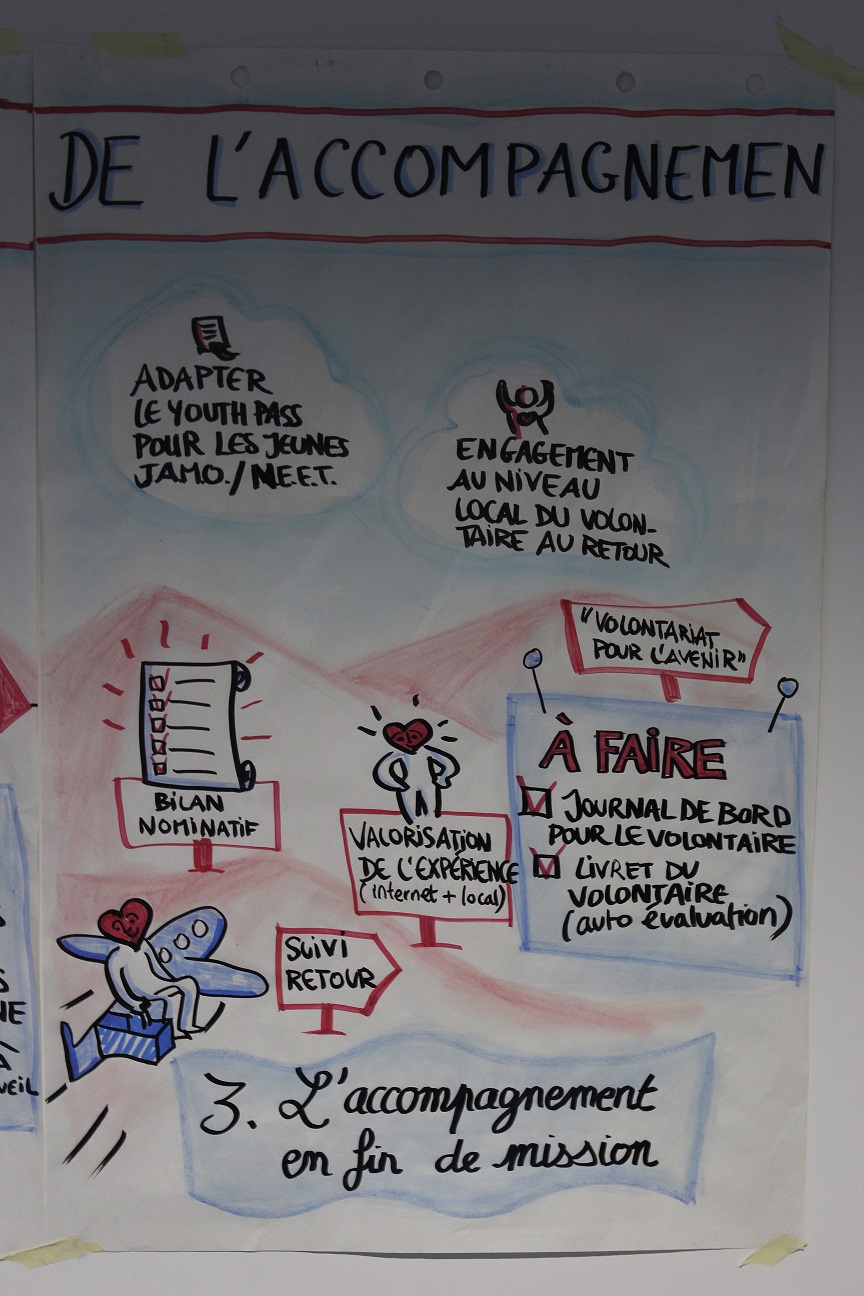 DE L'ACCOMPAGNEMEN
ADAPTER
LE YOUTH PASS
POUR LES JEUNES
J.A.M.O./N.E.E.T.
ENGAGEMENT
AU NIVEAU
LOCAL DU VOLON-
TAIRE AU RETOUR
"VOLONTARIAT
POUR L'AVENIR"
À FAIRE
JOURNAL DE BORD
POUR LE VOLONTAIRE
LIVRET DU
VOLONTAIRE
(auto évaluation)
BILAN
NOMINATIF
VALORISATION
DE L'EXPÉRIENCE
(internet + local)
SUIVI
RETOUR
3. L'accompagnement
en fin de mission